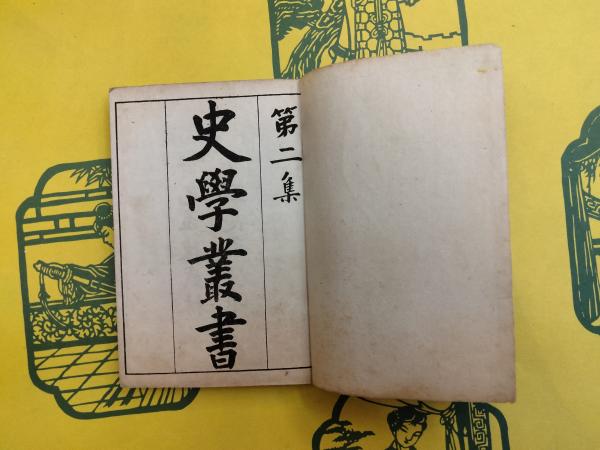 第二集
史學叢書